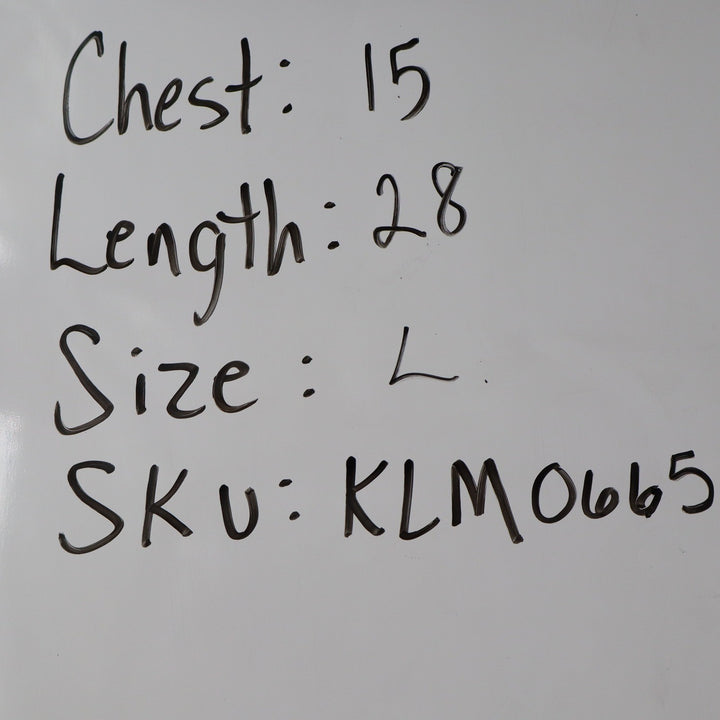 Chest: 15
Length: 28
Size: L
SKU: KLM0665